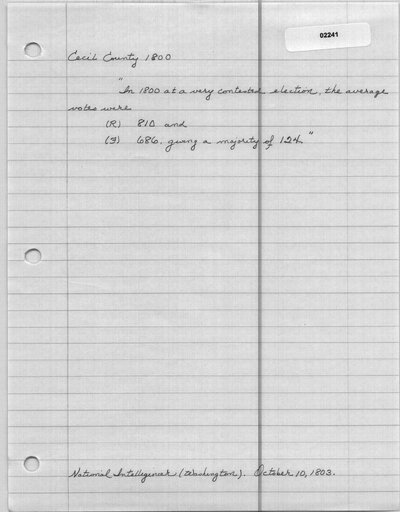 02241
Cecil County 1800
"In 1800 at a very contested election, the average
votes were
(R) 810 and
(F) 686, giving a majority of 124."
National Intelligencer (Washington). October 10, 1803.